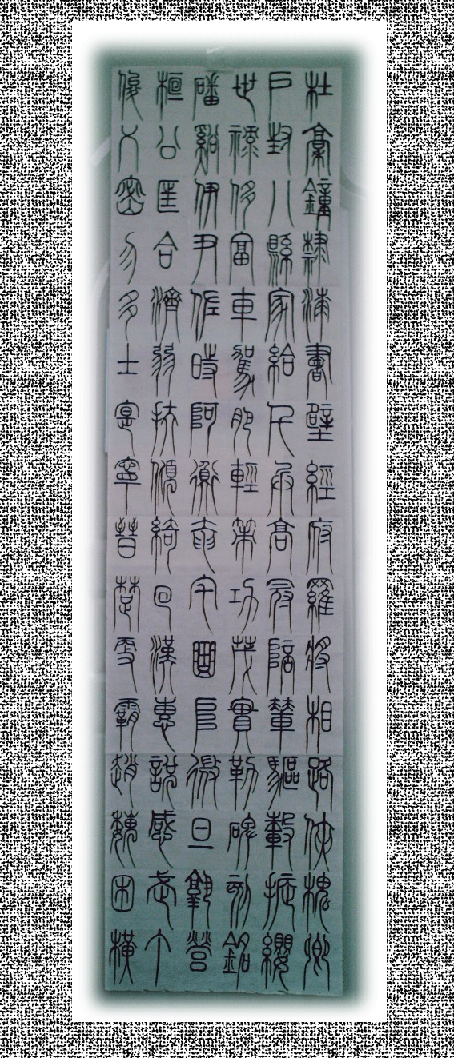 杜稾鐘隸漆書壁經府羅將相路俠槐卿
戶封八縣家給千兵高冠陪輦驅轂振纓
世祿侈富車駕肥輕策功茂實勒碑刻銘
磻谿伊尹佐時阿衡奄宅曲阜微旦孰營
桓公匡合濟弱扶傾綺回漢惠說感武丁
俊乂密勿多士寔寧晉楚更霸趙魏困橫